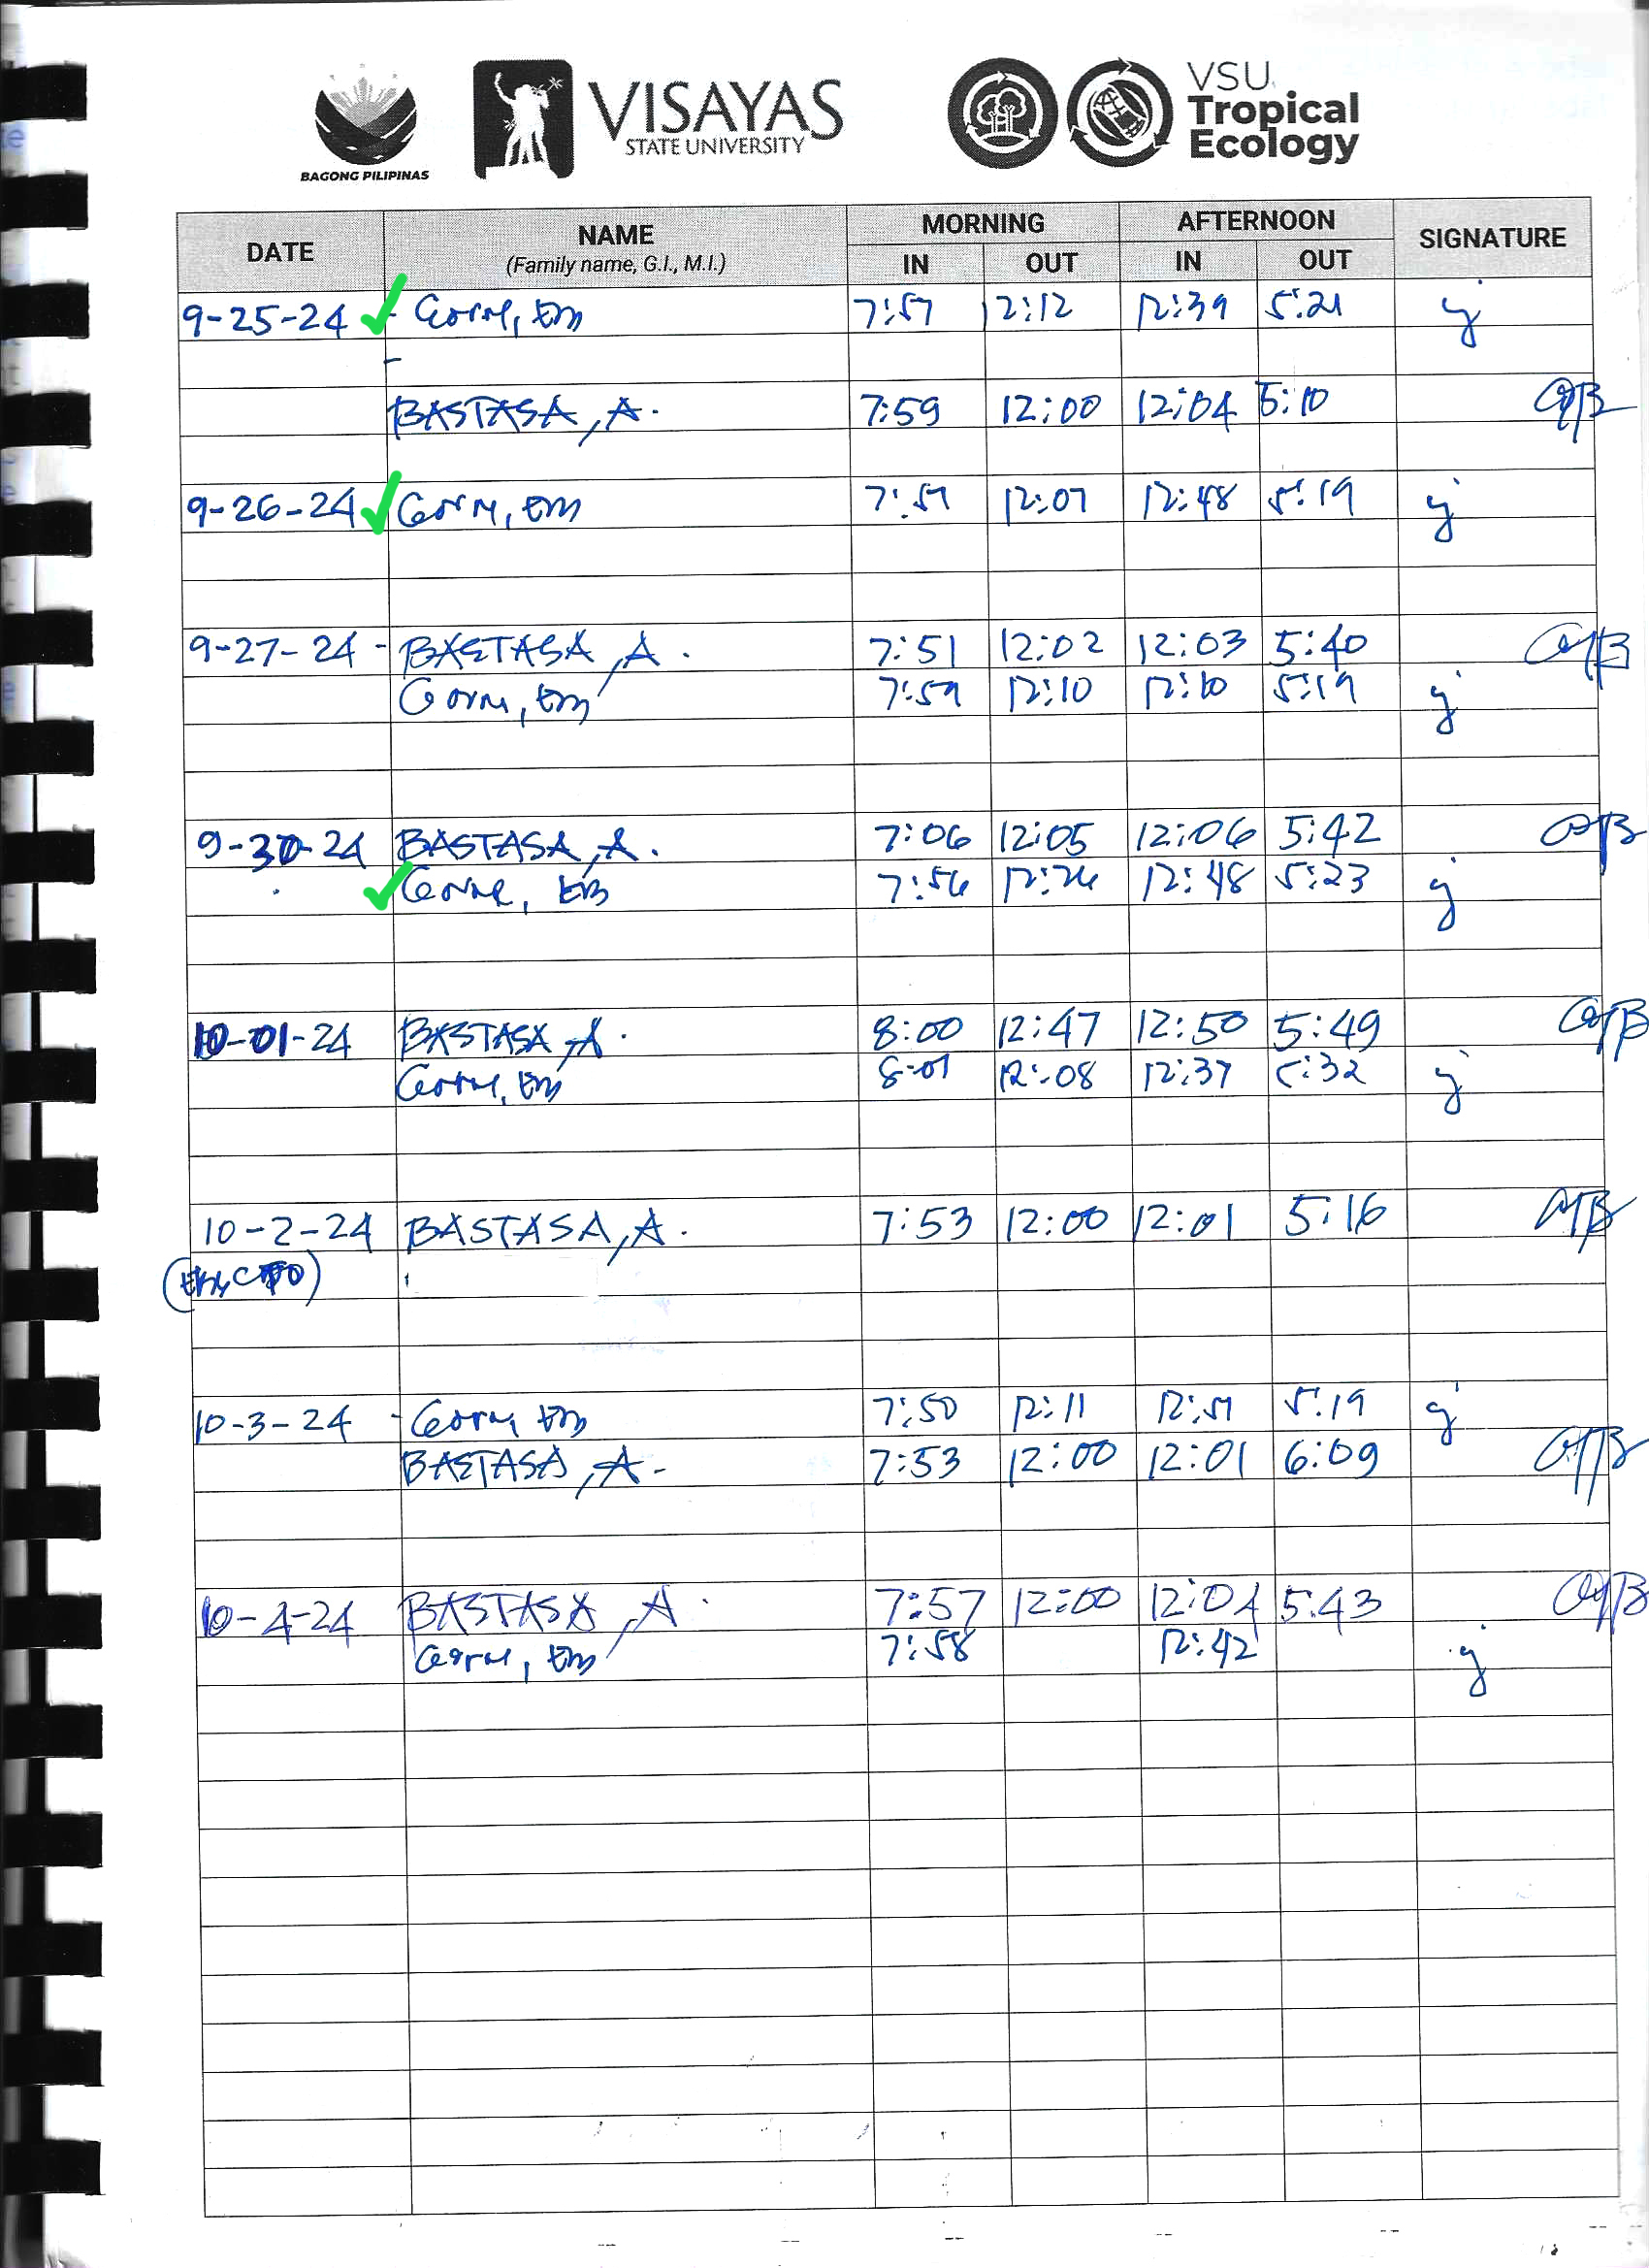 BAGONG PILIPINAS
VISAYAS
STATE UNIVERSITY
VSU
Tropical
Ecology
DATE NAME MORNING AFTERNOON SIGNATURE
(Family name, G.I., M.I.) IN OUT IN OUT
9-25-24 7:57 12:12 12:39 5:21
BASTASA, A. 7:59 12:00 12:04 5:10
9-26-24 7:57 12:07 12:48 5:19
9-27-24 - BASTASA, A. 7:51 12:02 12:03 5:40
7:59 12:10 12:10 5:19
9-30-24 BASTASA, A. 7:06 12:05 12:06 5:42
7:56 12:26 12:48 5:23
10-01-24 BASTASA, A. 8:00 12:47 12:50 5:49
8:01 12:08 12:37 5:32
10-2-24 BASTASA, A. 7:53 12:00 12:01 5:16
10-3-24 7:50 12:11 12:51 5:19
BASTASA, A. 7:53 12:00 12:01 6:09
10-4-24 BASTASA, A. 7:57 12:00 12:04 5:43
7:58 12:42